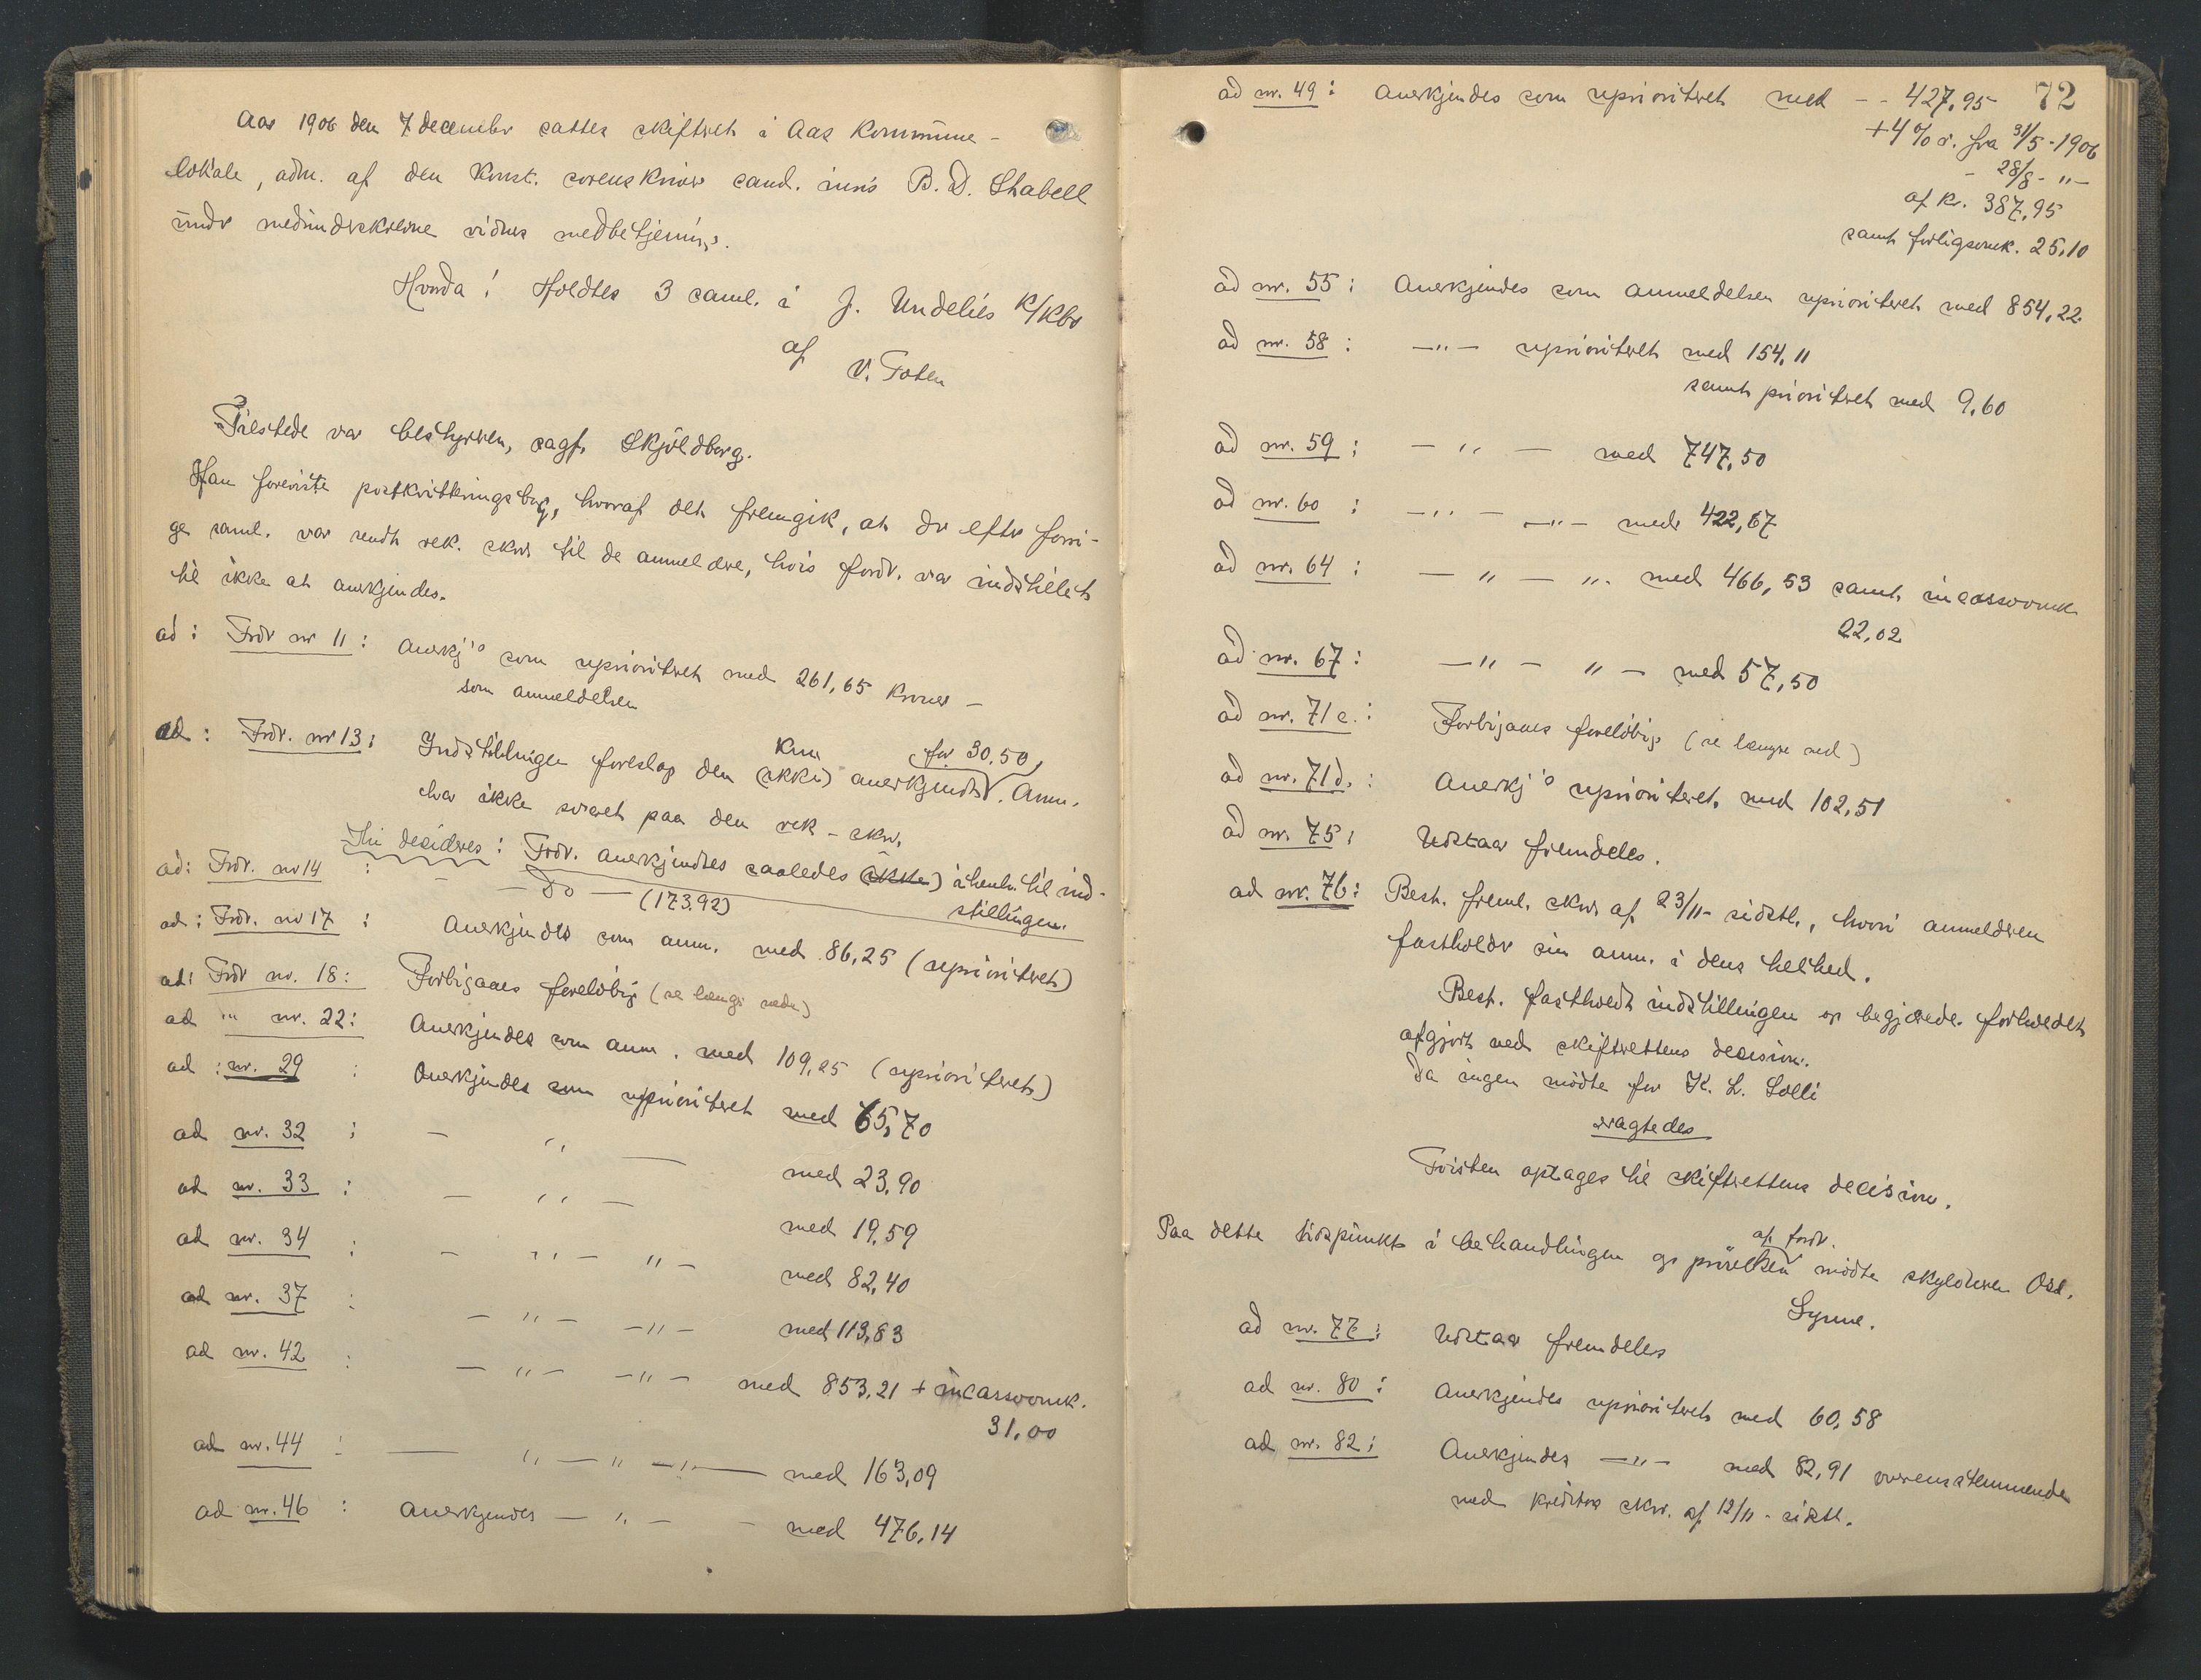 Aas 1906 den 7 december sattes skifteret i Aas kommune-
lokale, adm. af den konst. sorenskriver cand. juris B. D. Stabell
under medunderskrevne vidners medbetjening.
Hvorda: Holdtes 3 saml. i J. Undelies K/Kbo
af
V. Toten
Tilstede var bestyreren, sagf. Skjöldberg.
Han foreviste postkvitteringsbog, hvoraf det fremgik, at der efter forri-
ge saml. var sendt rek. skr. til de anmeldere, hvis fordr. var indstillet
til ikke at anerkjendes.
ad: Fordr nr 11: Anerkj's som uprioritert med 261,65 kroner -
som anmeldelsen
ad: Fordr. nr 13: Indstillingen foreslog den (ikke) kun anerkjendt for 30.50. Anm.
har ikke svaret paa den rek-skr.
Thi decideres: Fordr. anerkjendtes saaledes (ikke) i henh. til ind-
stillingen.
ad: Fordr. nr 14 : - - do - (173.92)
ad: Fordr. nr 17 : Anerkjendes som anm. med 86,25 (uprioritert)
ad: Fordr nr. 18: Forbigaaes foreløbig (se længr nede)
ad " nr. 22: Anerkjendes som anm. med 109,25 (uprioritert)
ad: nr. 29 : Anerkjendes som uprioritert med 65,70
ad nr. 32 : - " - med 23,90
ad nr. 33 : - " - med 19,59
ad nr. 34 : - " - " - med 82,40
ad nr. 37 : - " - - " - med 113,83
ad nr. 42 : - " - - " - med 853,21 + incassoomk.
31,00
ad nr. 44 : - " - " - " - med 163,09
ad nr. 46 : Anerkjendes - " - - med 476,14
72
ad nr. 49: Anerkjendes som uprioritert med - - 427,95
+ 4% r. fra 31/5-1906
- 28/8 - " -
af kr. 387,95
samt forligsomk. 25,10
ad nr. 55: Anerkjendes som anmeldelsen uprioritert med 854,22
ad nr. 58: - " - uprioritert med 154,11
samt prioritert med 9,60
ad nr. 59: - " - med 747,50
ad nr. 60 : - " - - " - med 422,67
ad nr. 64 : - " - " - med 466,53 samt incassoomk
22,02
ad nr. 67: - " - " - med 57,50
ad nr. 71c.: Forbigaaes foreløbig (se længre ned)
ad nr. 71d.: Anerkj's uprioritert. med 102,51
ad nr. 75: Udstaar fremdeles.
ad nr. 76: Best. freml. skr. af 23/11 - sidstl., hvori anmelderen
fastholder sin anm. i dens helhed.
Best. fastholdt indstillingen og begjærede forholdet
afgjort ved skifterettens decision.
Da ingen mödte for K. L. Lolli
vragtedes
Tvisten optages til skifterettens decision.
Paa dette tidspunkt i behandlingen og prövelsen af fordr. mödte skyldneren Osd.
Synne.
ad nr. 77: Udstaar fremdeles
ad nr. 80: Anerkjendes uprioritert med 60,58
ad nr. 82: Anerkjendes - " - med 82,91 overensstemmende
med kreditors skr. af 12/11 - sidstl.